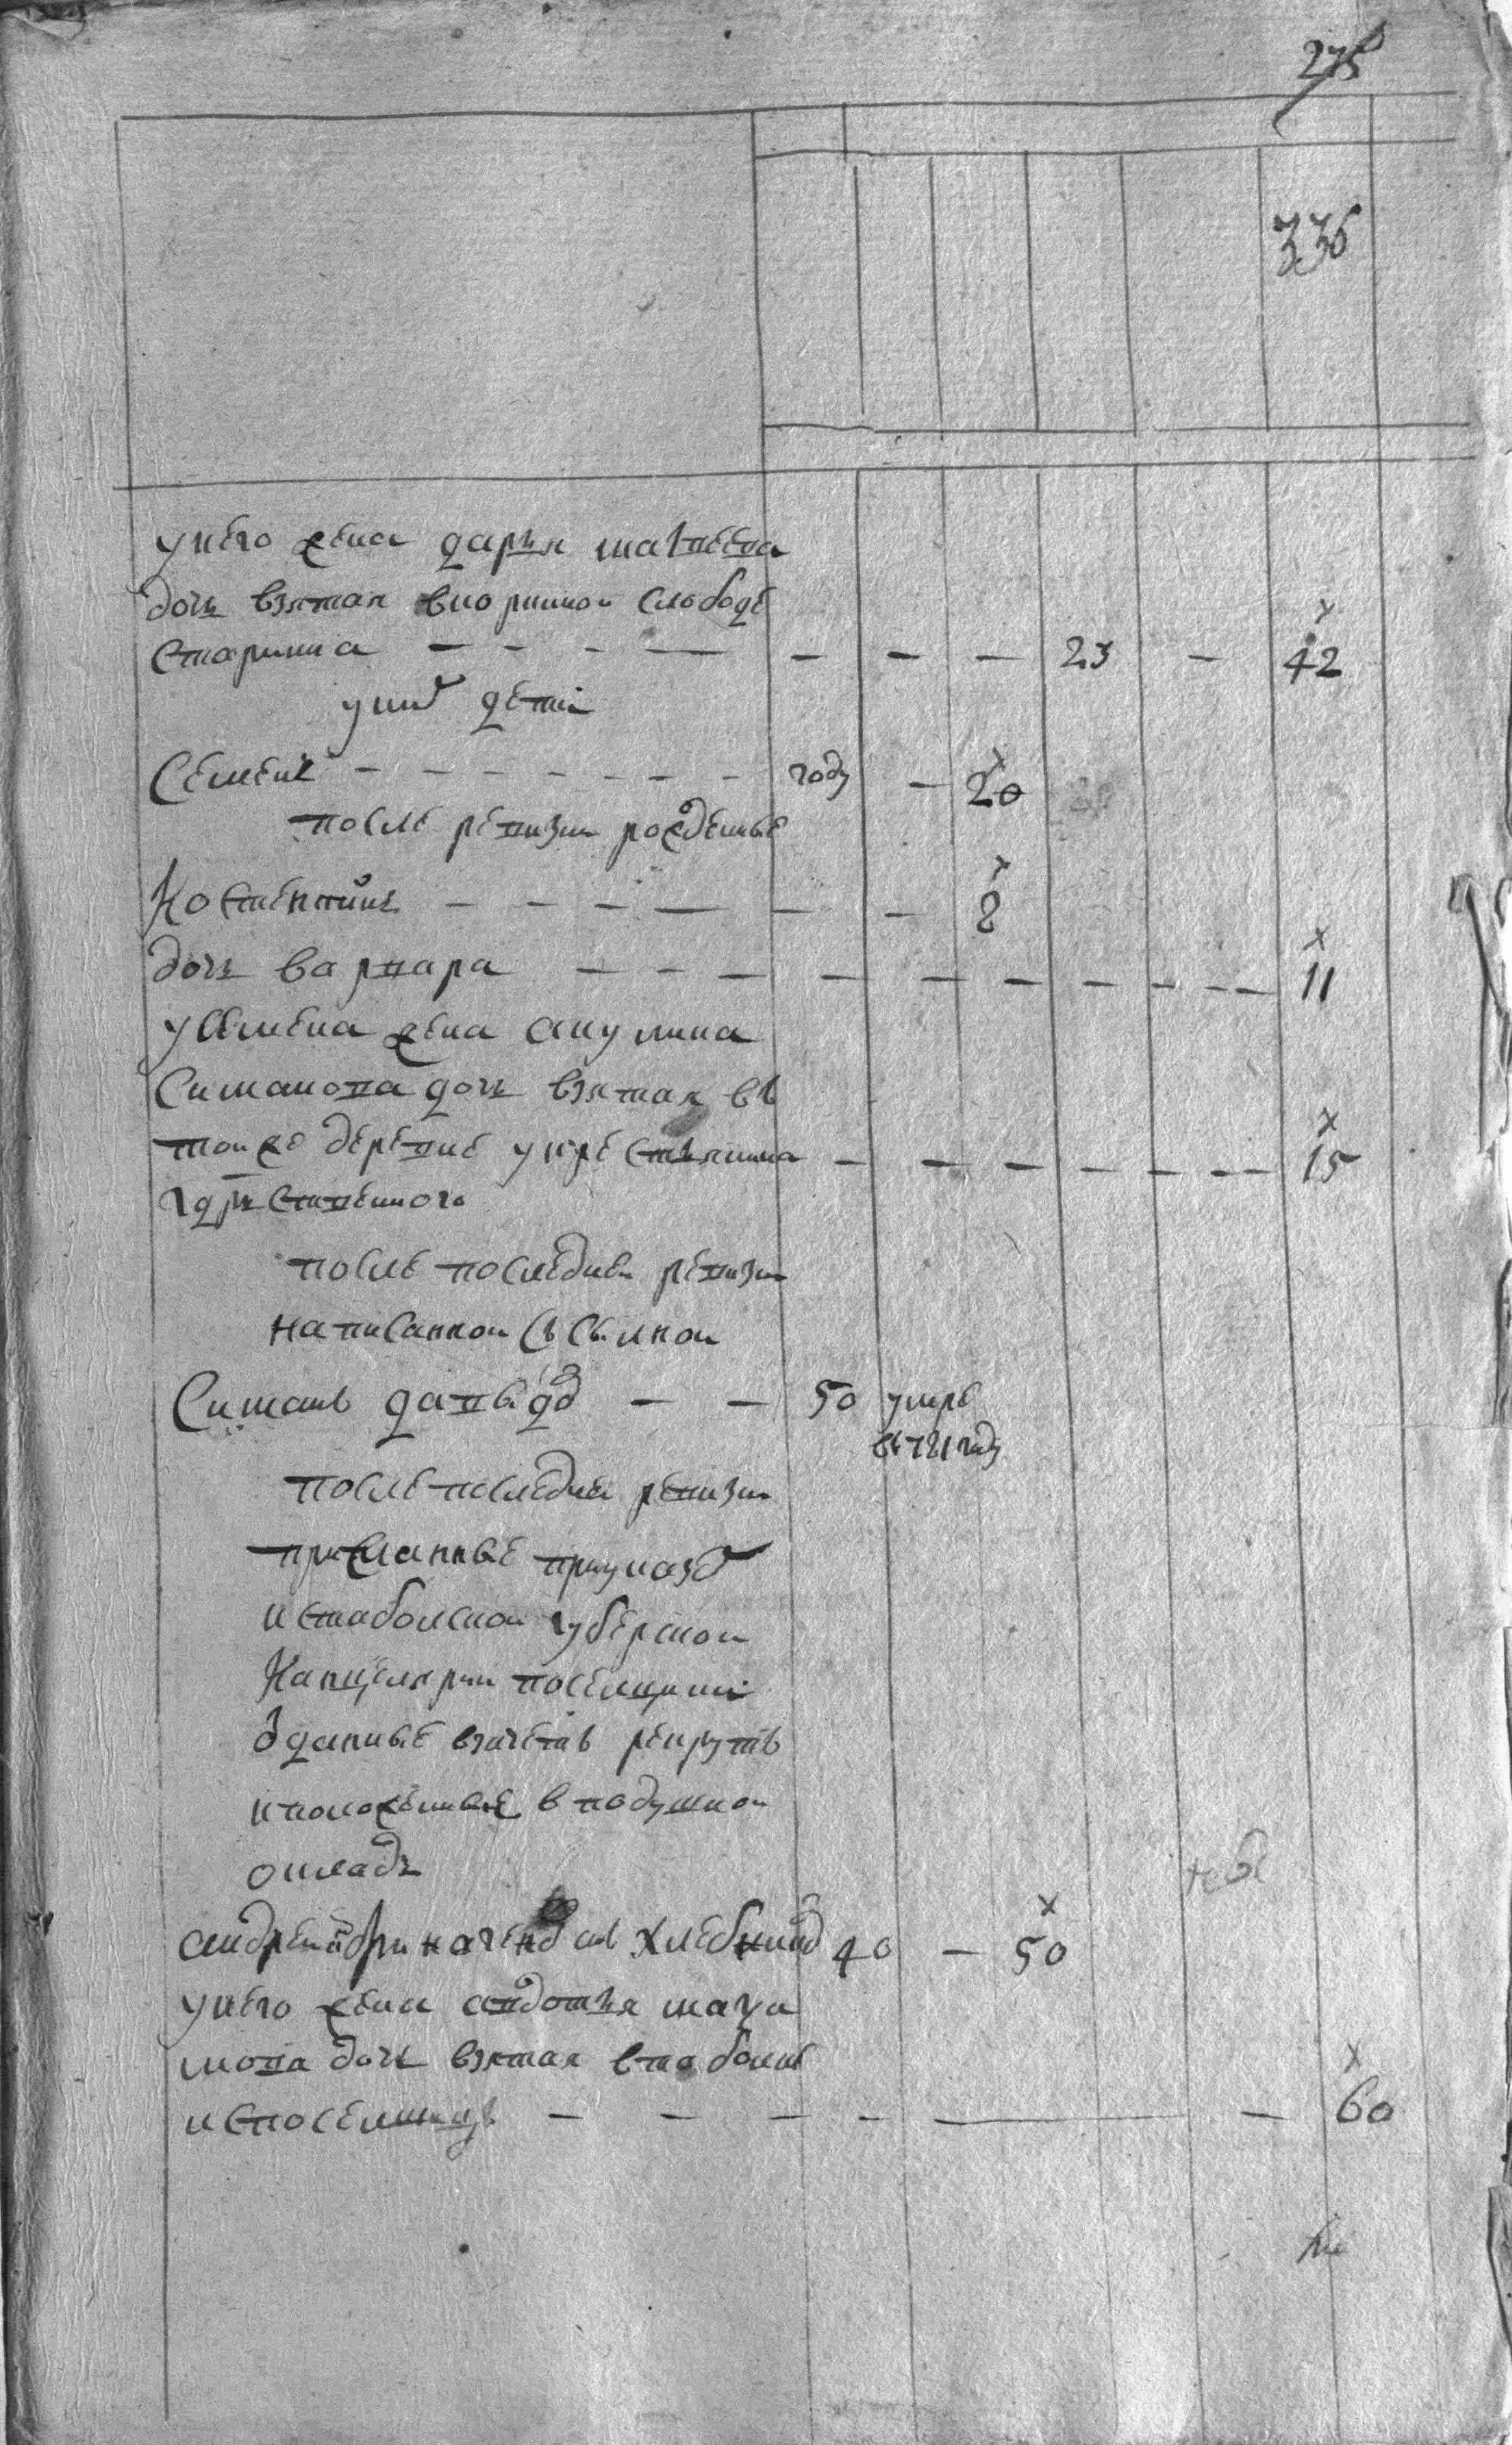 275
336
у него жена дарья матвеева
дочь взятая в слободе
старинна — — — — — — — 23 — 42
у них дети
Семенъ — — — — — — — году — 20
после ревизии рожденые
Костентинъ — — — — — — 8
дочь варвара — — — — — — — — — — 11
у семена жена акулина
Симанова дочь взятая въ
тои же деревне у крестьянина — — — — — — — 15
гдрьственного
после последнеи ревизии
написаннои съ
Симанъ давыдо — — 50 умре
въ 781 году
после последнеи ревизии
присланные при указе
ис табольскои губерскои
Канцелярии поселщики
зданные взачетъ рекрутъ
и положенные в подушнои
окладъ
андреи хлебнико 40 — 50
у него жена авдотья
мова дочь взятая в табольке
ис поселщицъ — — — — — — 60